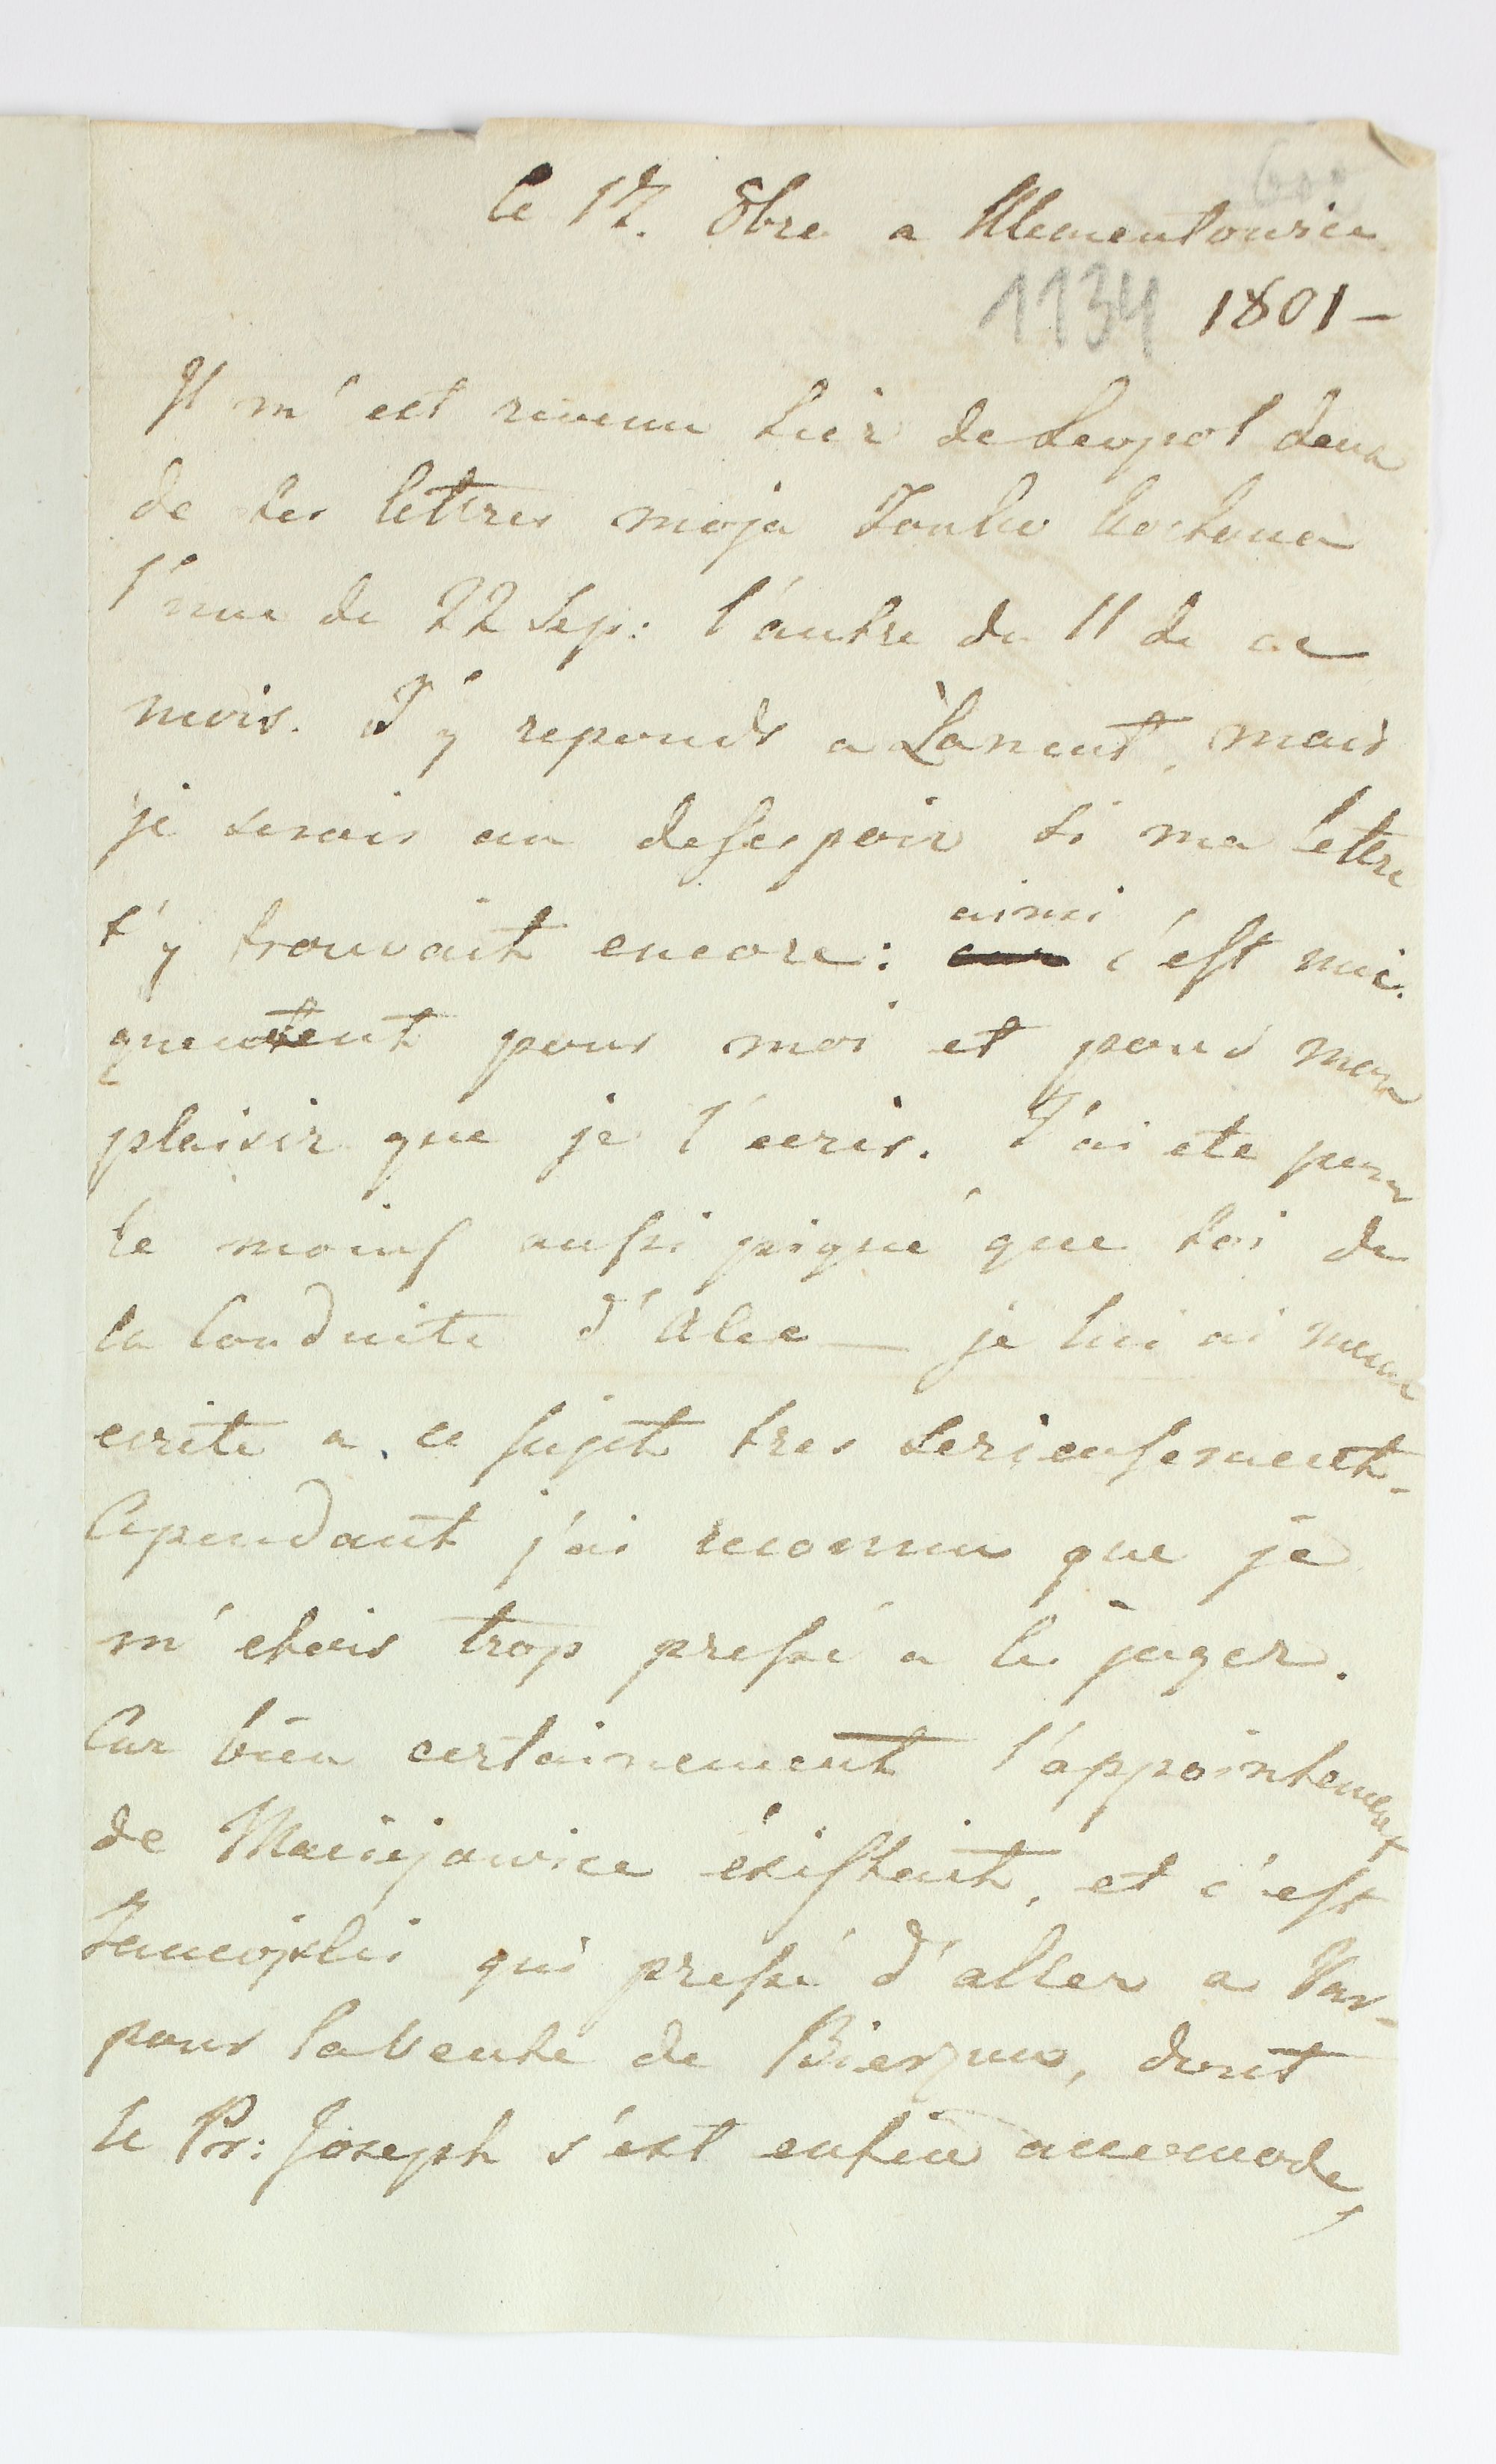 le 17. 8bre a Klementowice
1134 1801 –
Il m'est revenu hier de Leopol deux
de tes lettres moja Zonko kochana
l'une du 22 Sep: l'autre du 11 de ce
mois. J'y reponds a Lancut, mais
je serois au desespoir si ma lettre
t'y trouvait encore: ainsi c'est uni-
quement pour moi et pour mon
plaisir que je t'ecris. J'ai ete pour
le moins aussi piqué que toi de
la Conduite d'Alex — je lui ai meme
ecrite a ce sujet tres serieusement.
Cependant j'ai reconnu que je
m'etois trop pressé a le juger.
Car bien certainement l'appointement
de Maciejowice existait, et c'est
qui pressé d'aller a Var-
pour la Vente de Bierzun, dont
le Pr: Joseph s'est enfin accomodé,